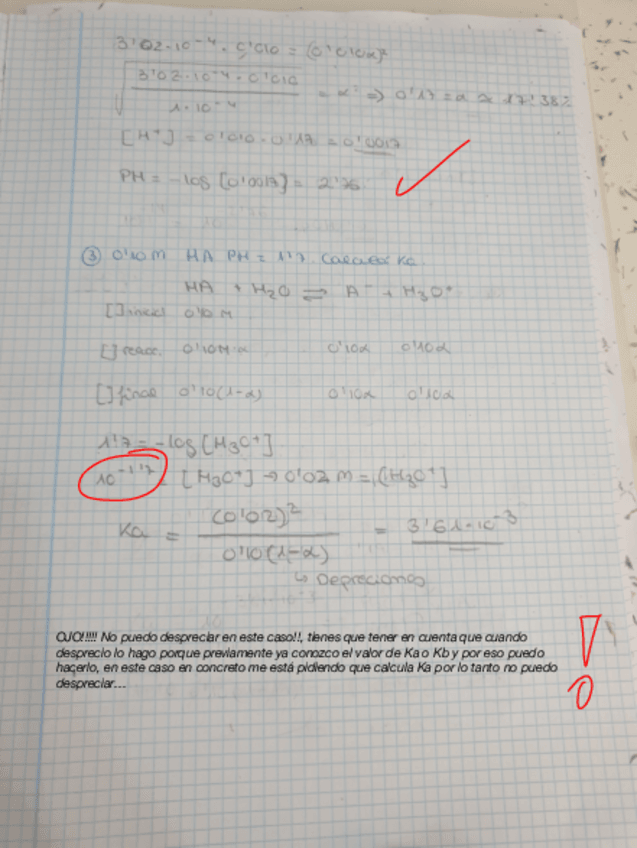 3'02·10⁻⁴ · 0'010 = (0'010α)²
√(3'02·10⁻⁴ · 0'010 / 1·10⁻⁴) = α² => 0'17 = α ≈ 17'38%
[H⁺] = 0'010 · 0'17 = 0'0017
PH = -log [0'0017] = 2'76
③ 0'10 M HA PH = 1'7. Calcular Ka.
HA + H₂O ⇌ A⁻ + H₃O⁺
[] inicial 0'10 M
[] reacc. 0'10M·α 0'10α 0'10α
[] final 0'10(1-α) 0'10α 0'10α
1'7 = -log [H₃O⁺]
10⁻¹'⁷ = [H₃O⁺] → 0'02 M = [H₃O⁺]
Ka = (0'02)² / 0'10(1-α) = 3'61·10⁻³
↳ Depreciamos
OJO!!!!! No puedo despreciar en este caso!!, tienes que tener en cuenta que cuando
desprecio lo hago porque previamente ya conozco el valor de Ka o Kb y por eso puedo
hacerlo, en este caso en concreto me está pidiendo que calcula Ka por lo tanto no puedo
despreciar...